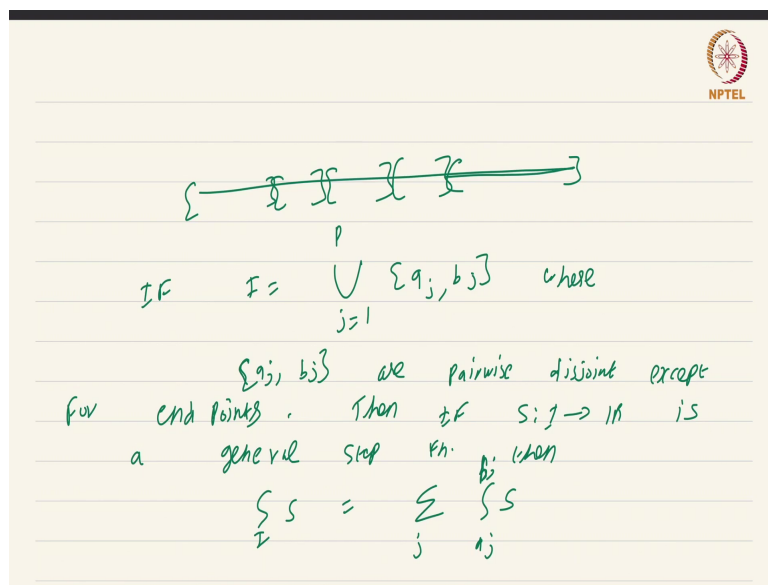 NPTEL
{ }{ }{ }{ }{ }
p
IF I = ∪ {aj, bj} where
j=1
{aj, bj} are pairwise disjoint except
for end points. Then IF S: I → IR is
a general step fn. then
∫ S = Σ ∫ S
bj
I j aj